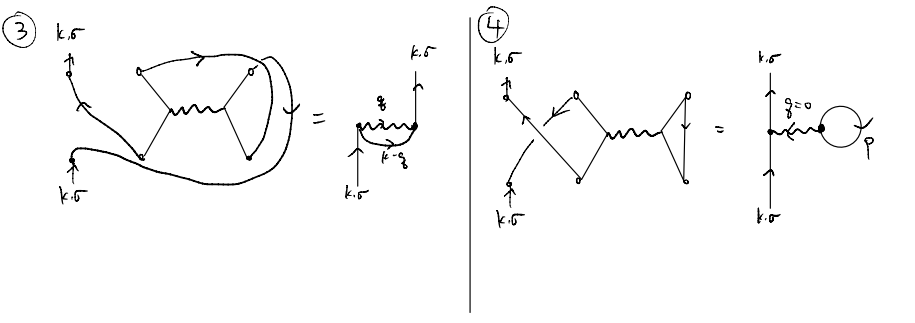 ③
k.σ
k.σ
=
q
k-q
k.σ
k.σ
④
k.σ
k.σ
=
k.σ
q=0
p
k.σ